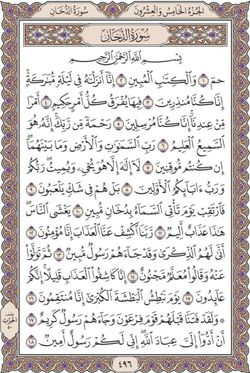 الجزء الخامس والعشرون
سورة الدخان
سُورَةُ الدُّخَانِ
بِسْمِ اللَّهِ الرَّحْمَٰنِ الرَّحِيمِ
حمٓ ١ وَالْكِتَابِ الْمُبِينِ ٢ إِنَّا أَنزَلْنَاهُ فِي لَيْلَةٍ مُّبَارَكَةٍ
إِنَّا كُنَّا مُنذِرِينَ ٣ فِيهَا يُفْرَقُ كُلُّ أَمْرٍ حَكِيمٍ ٤ أَمْرًا
مِّنْ عِندِنَا إِنَّا كُنَّا مُرْسِلِينَ ٥ رَحْمَةً مِّن رَّبِّكَ إِنَّهُ هُوَ
السَّمِيعُ الْعَلِيمُ ٦ رَبِّ السَّمَاوَاتِ وَالْأَرْضِ وَمَا بَيْنَهُمَا
إِن كُنتُم مُّوقِنِينَ ٧ لَا إِلَٰهَ إِلَّا هُوَ يُحْيِي وَيُمِيتُ رَبُّكُمْ
وَرَبُّ آبَائِكُمُ الْأَوَّلِينَ ٨ بَلْ هُمْ فِي شَكٍّ يَلْعَبُونَ ٩
فَارْتَقِبْ يَوْمَ تَأْتِي السَّمَاءُ بِدُخَانٍ مُّبِينٍ ١٠ يَغْشَى النَّاسَ
هَٰذَا عَذَابٌ أَلِيمٌ ١١ رَّبَّنَا اكْشِفْ عَنَّا الْعَذَابَ إِنَّا مُؤْمِنُونَ ١٢
أَنَّىٰ لَهُمُ الذِّكْرَىٰ وَقَدْ جَاءَهُمْ رَسُولٌ مُّبِينٌ ١٣ ثُمَّ تَوَلَّوْا
عَنْهُ وَقَالُوا مُعَلَّمٌ مَّجْنُونٌ ١٤ إِنَّا كَاشِفُو الْعَذَابِ قَلِيلًا إِنَّكُمْ
عَائِدُونَ ١٥ يَوْمَ نَبْطِشُ الْبَطْشَةَ الْكُبْرَىٰ إِنَّا مُنتَقِمُونَ ١٦
وَلَقَدْ فَتَنَّا قَبْلَهُمْ قَوْمَ فِرْعَوْنَ وَجَاءَهُمْ رَسُولٌ كَرِيمٌ ١٧
أَنْ أَدُّوا إِلَيَّ عِبَادَ اللَّهِ إِنِّي لَكُمْ رَسُولٌ أَمِينٌ ١٨
٤٩٦